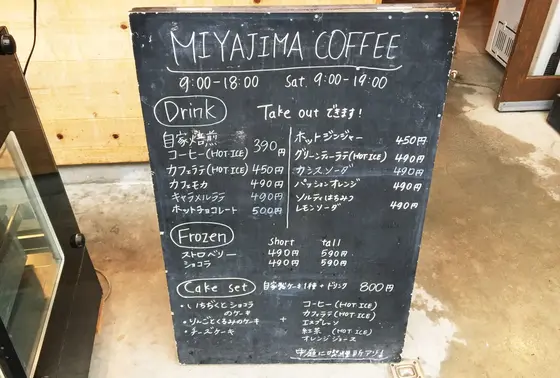 MIYAJIMA COFFEE
9:00-18:00 Sat. 9:00-19:00
Drink Take out できます!
自家焙煎
コーヒー(HOT・ICE) 390円
カフェラテ(HOT・ICE) 450円
カフェモカ 490円
キャラメルラテ 490円
ホットチョコレート 500円
ホットジンジャー 450円
グリーンティーラテ(HOT・ICE) 490円
カシスソーダ 490円
パッションオレンジ 490円
ソルティはちみつ
レモンソーダ 490円
Frozen short tall
ストロベリー 490円 590円
ショコラ 490円 590円
Cake set 自家製ケーキ1種+ドリンク 800円
・いちぢくとショコラ
のケーキ
・りんごとくるみのケーキ
・チーズケーキ
+
コーヒー(HOT・ICE)
カフェラテ(HOT・ICE)
エスプレッソ
紅茶 (HOT・ICE)
オレンジジュース
中庭に喫煙所アリ